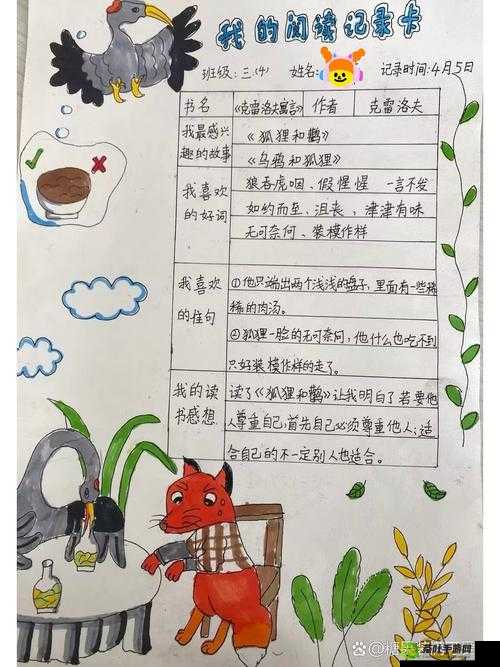 我的阅读记录卡
班级:三.(4) 姓名: 记录时间:4月5日
书名 《克雷洛夫寓言》 作者 克雷洛夫
我最感兴趣的故事
《狐狸和鹳》
《乌鸦和狐狸》
我喜欢的好词
狼吞虎咽、假惺惺 一言不发
如约而至、沮丧、津津有味
无可奈何、装模作样
我喜欢的佳句
①他只端出两个浅浅的盘子,里面有一些稀
稀的肉汤。
②狐狸一脸的无可奈何,他什么也吃不到
只好装模作样的走了。
我的读书感想
读了《狐狸和鹳》让我明白了若要他
人尊重自己,首先自己必须尊重他人;适
合自己的不一定别人也适合。